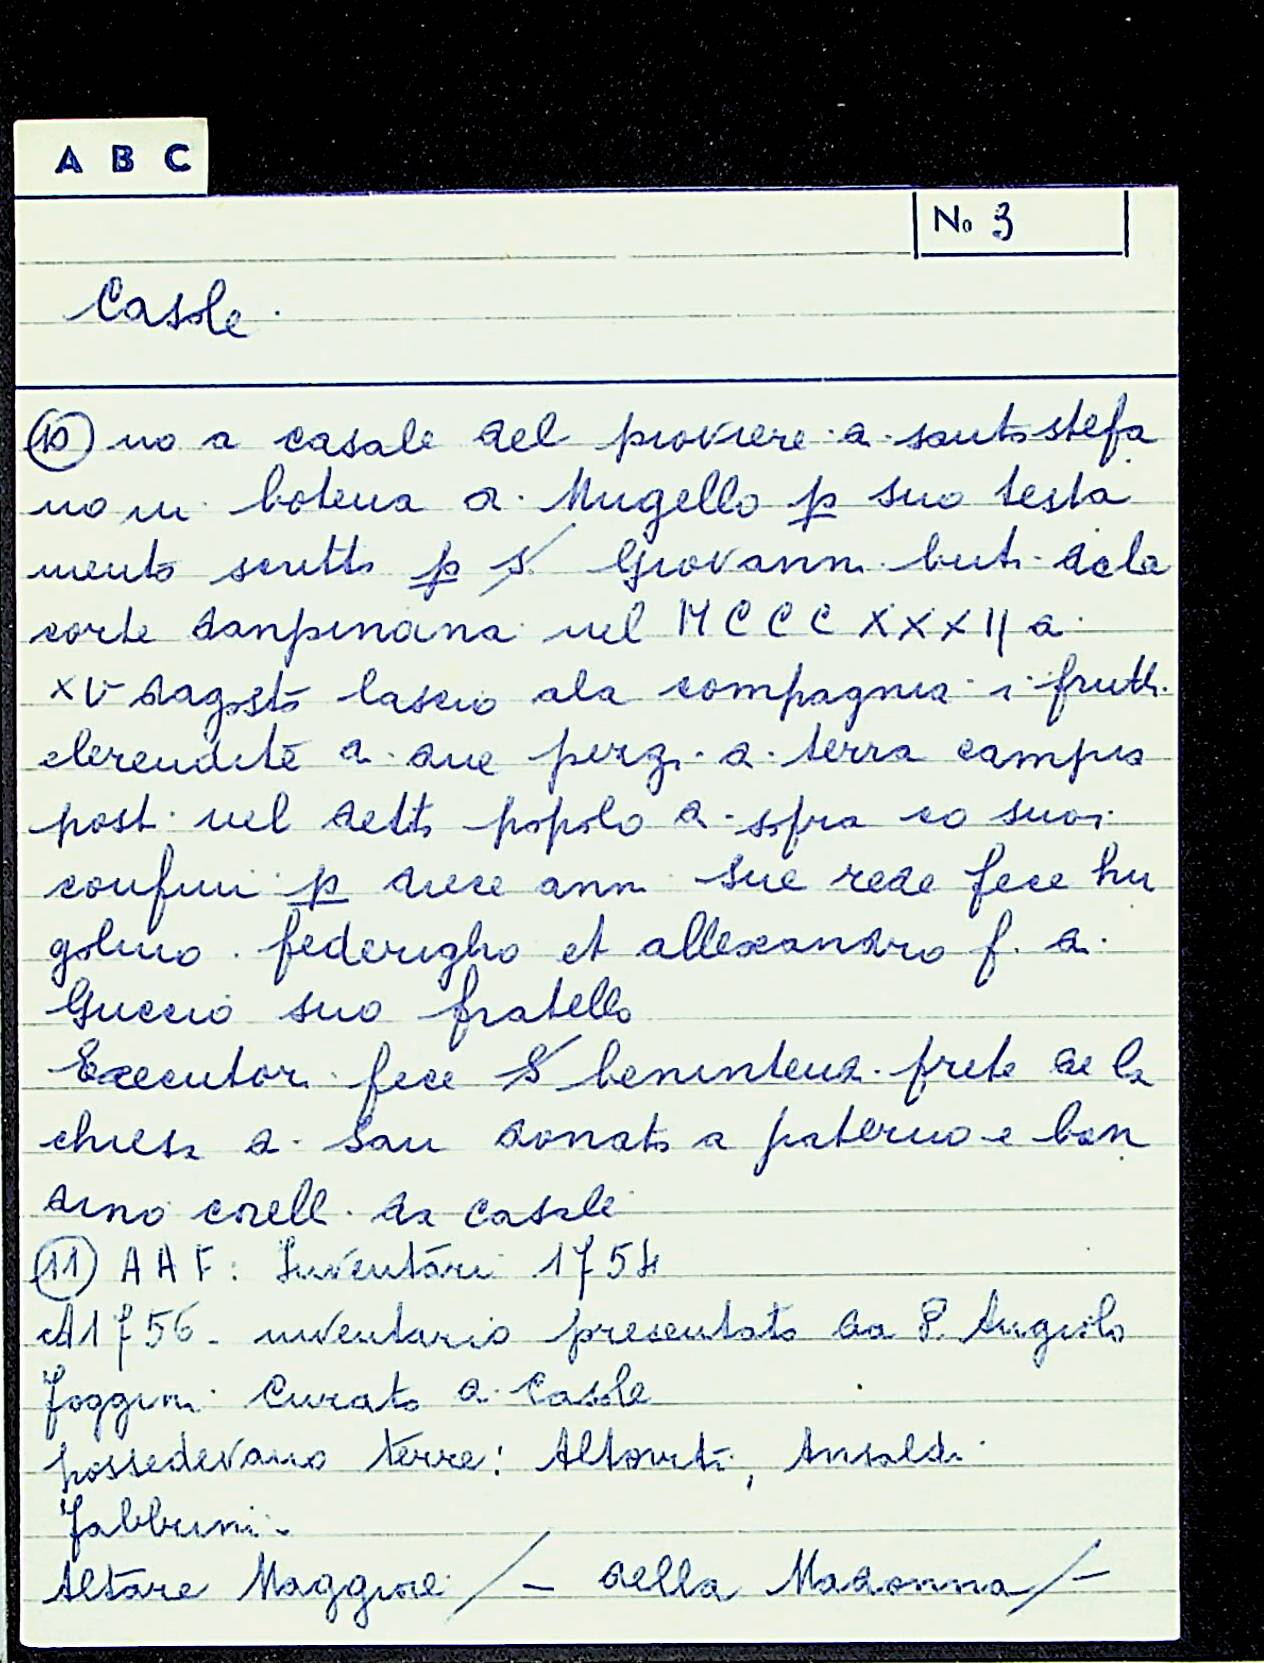 A B C
No 3
Casole.
10 no a casale del proviere di santo stefa
no in botena di Mugello p suo testa
mento scritto p S. Giovanni buti dela
corte danpinana nel MCCCXXXII a
XV dagosto lascio ala compagnia i frutti
elerendite di due pezzi di terra campia
posti nel detto popolo di sopra co suoi
confini p diece anni sue rede fece hu
golino. federigho et allexandro f. di
Guccio suo fratello
Executori fece S benintendi prete de la
chiesa di San donato a paterno e ban
dino corelli da casale
11 AAF: Inventari 1754
A1756 - inventario presentato da P. Angiolo
Foggini Curato di Casole
possedevano terre: Altoviti, Ansaldi
Fabbrini -
Altare Maggiore / - della Madonna / -